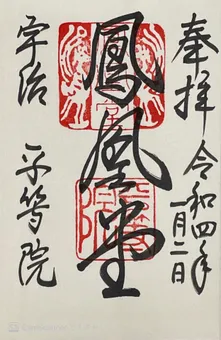 奉拝 令和四年一月二日
鳳凰堂
宇治 平等院